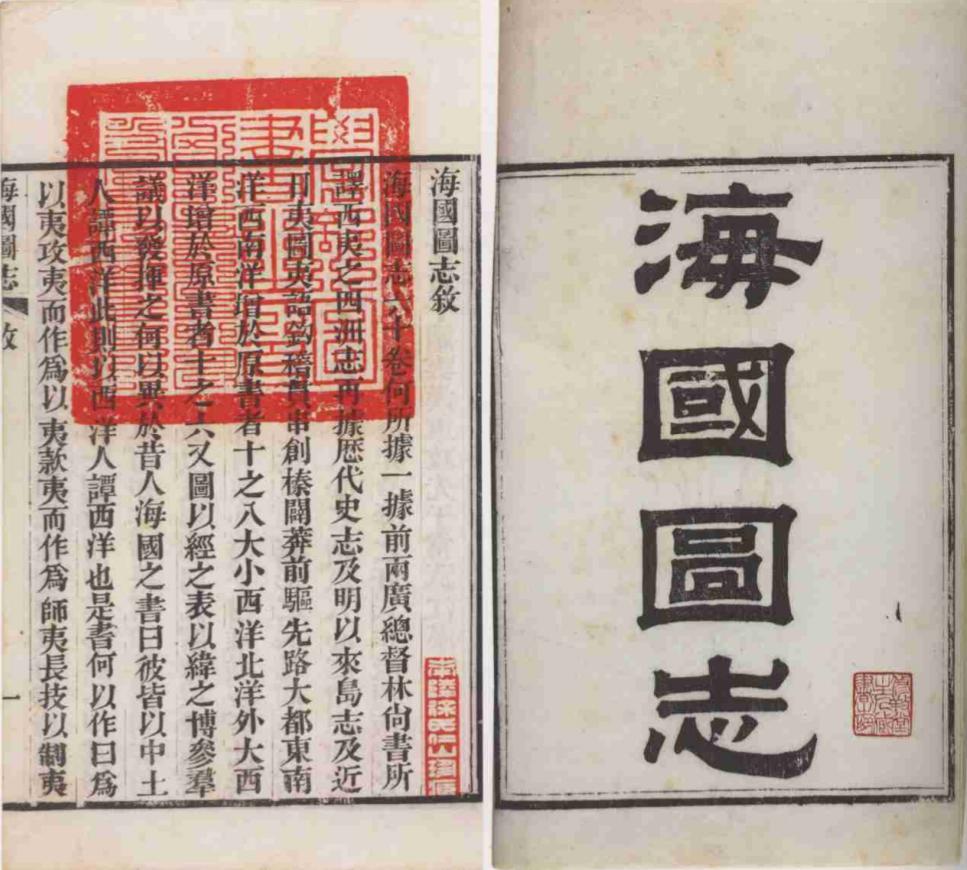 海國圖志
海國圖志敘
海國圖志六十卷何所據一據前兩廣總督林尚書所
譯西夷之四洲志再據歷代史志及明以來島志及近
日夷圖夷語鈎稽貫串創榛闢莽前驅先路大都東南
洋西南洋增於原書者十之八大小西洋北洋外大西
洋增於原書者十之六又圖以經之表以緯之博參羣
議以發揮之何以異於昔人海國之書曰彼皆以中土
人譚西洋此則以西洋人譚西洋也是書何以作曰爲
以夷攻夷而作爲以夷款夷而作爲師夷長技以制夷
海國圖志 敘 一